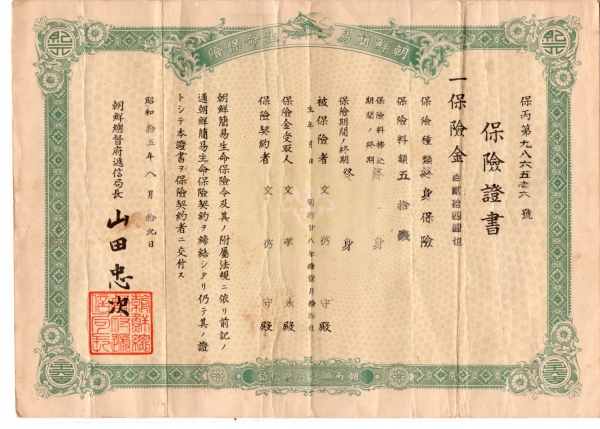 朝鮮簡易生命保險
保丙第九八六五壱六號
保險證書
一保險金 百貳拾四圓也
保險種類 終身保險
保險料額 五拾錢
保險料拂込期間ノ終期 終身
保險期間ノ終期 終身
被保險者 文仍守殿
生年月日 明治廿八年拾壹月拾四日
保險金受取人 文孝永殿
保險契約者 文仍守殿
朝鮮簡易生命保險令及其ノ附屬法規ニ依リ前記ノ
通朝鮮簡易生命保險契約ヲ締結シタリ仍テ其ノ證
トシテ本證書ヲ保險契約者ニ交付ス
昭和拾五年八月拾九日
朝鮮總督府遞信局長
山田忠次